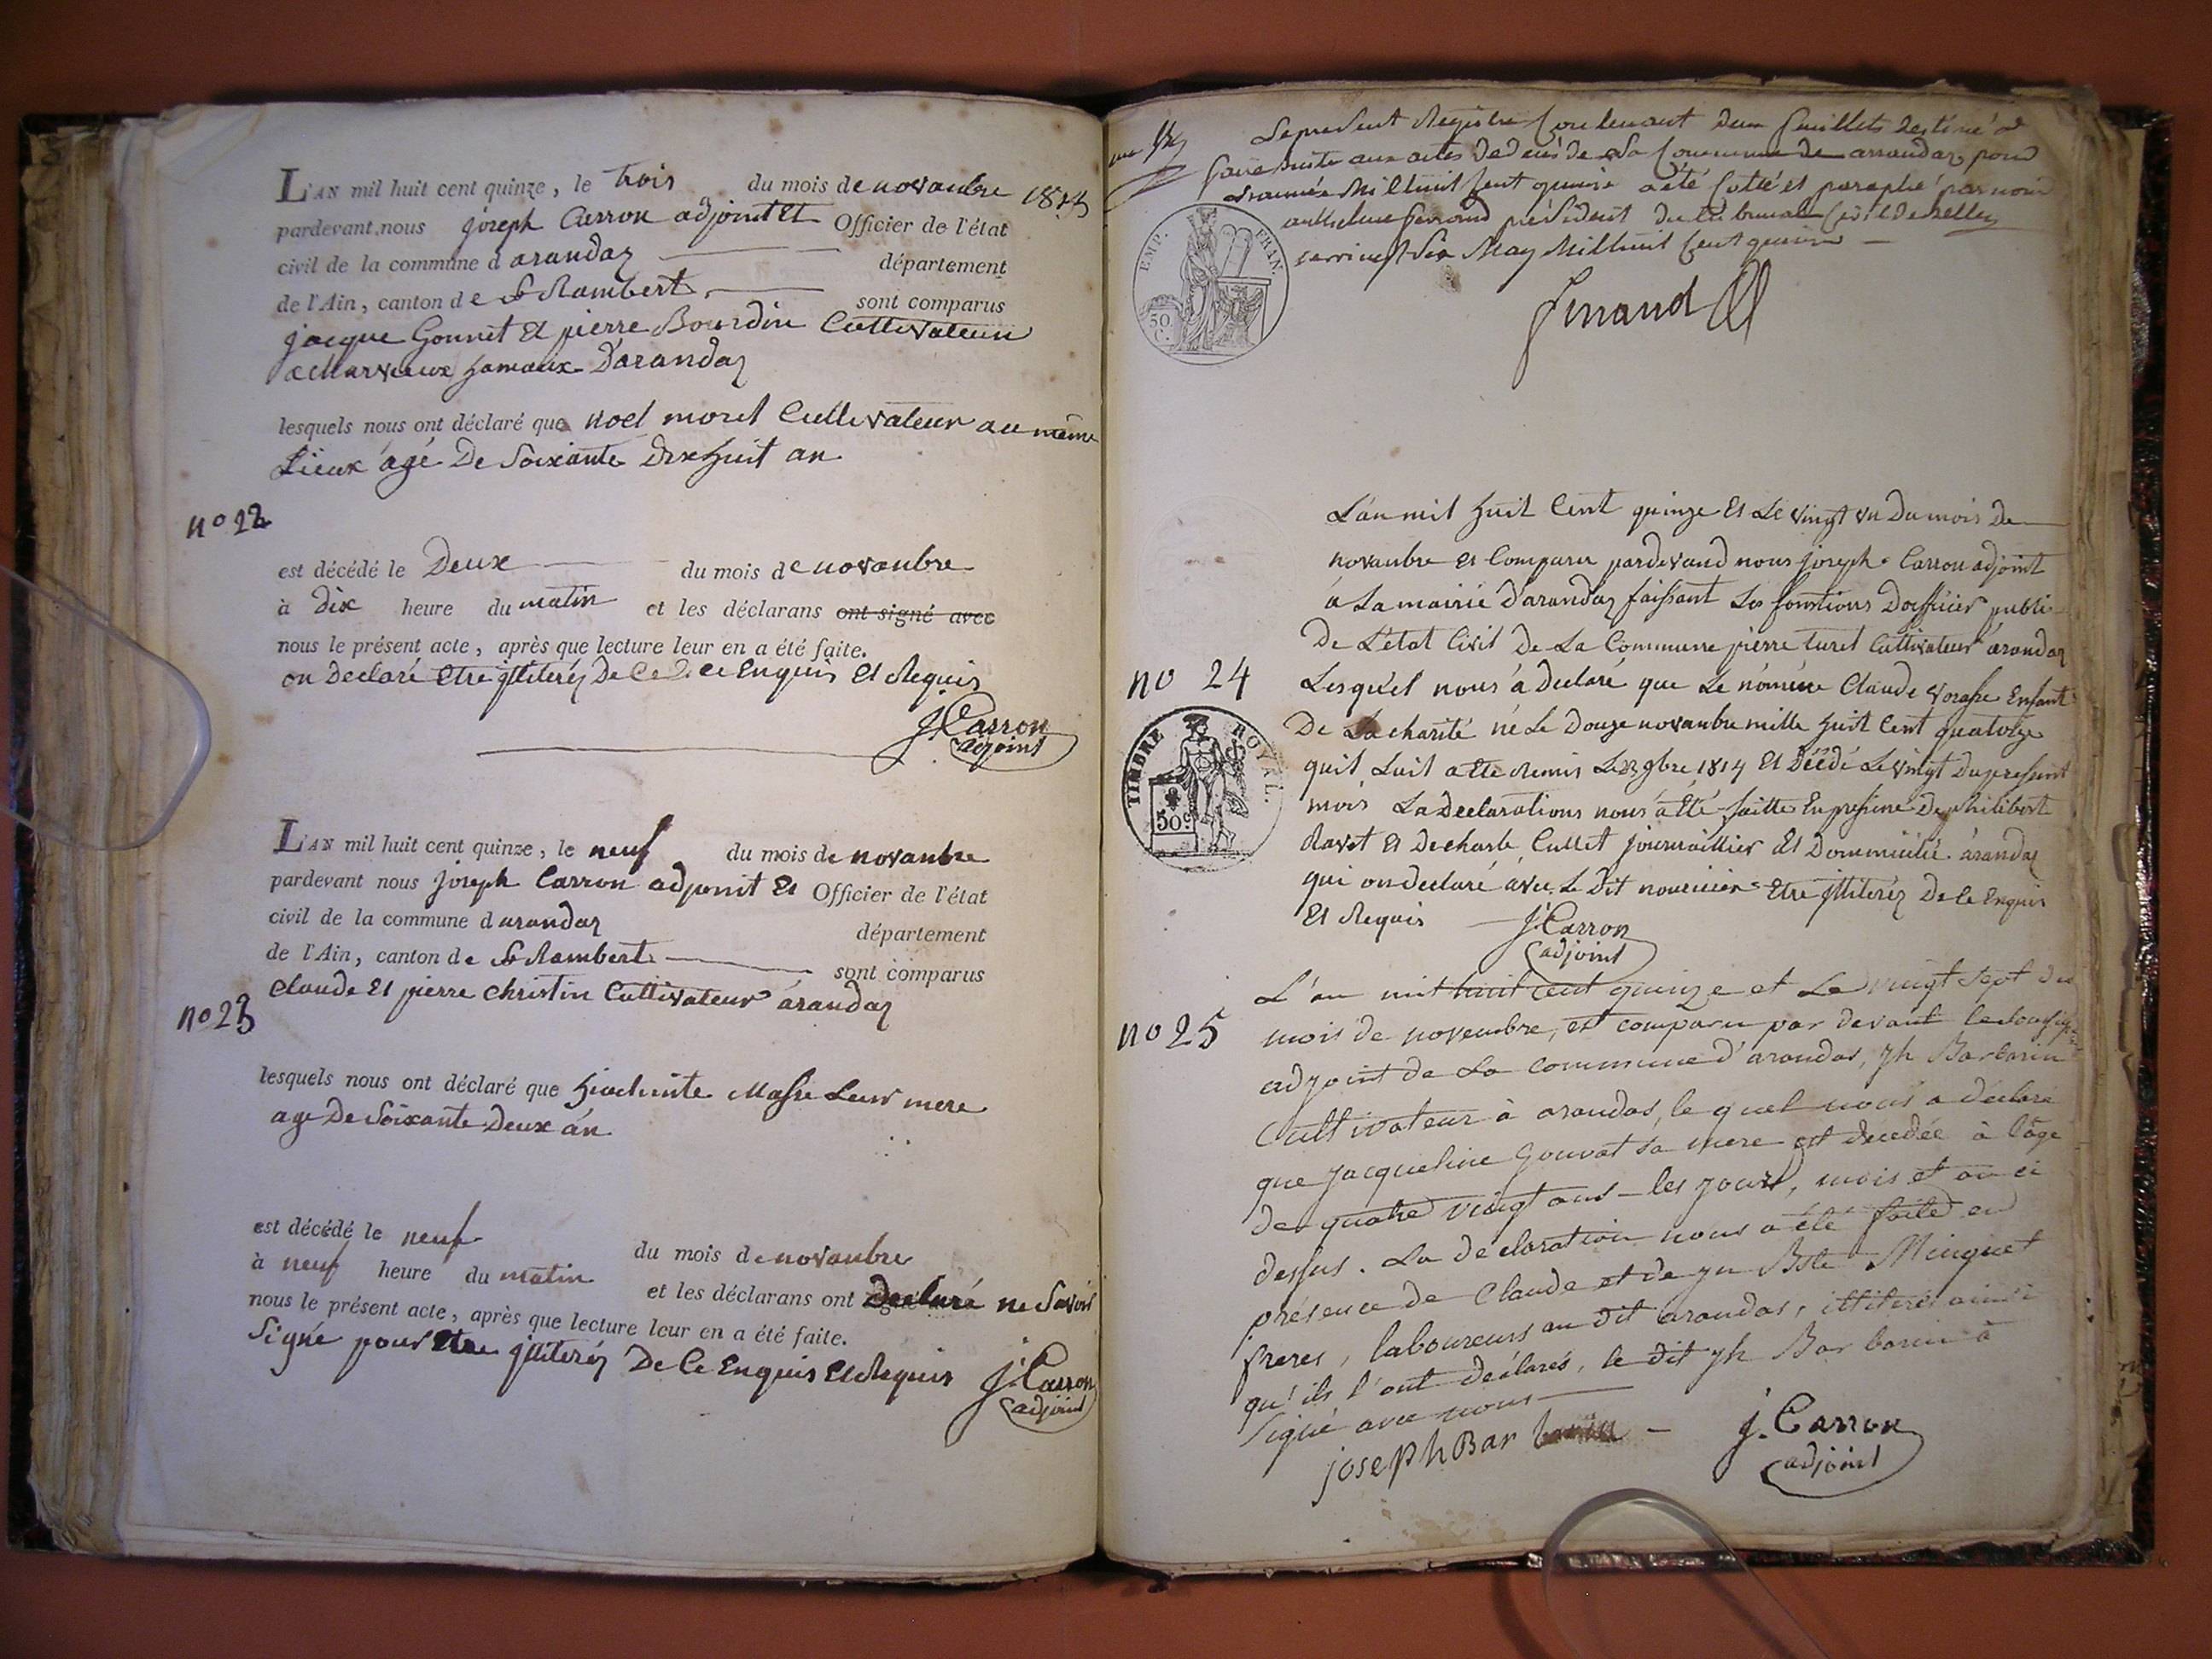 L'AN mil huit cent quinze, le trois du mois de novanbre 1815
pardevant nous joseph Carron adjoint Et Officier de l'état
civil de la commune d arandaz département
de l'Ain, canton de St Rambert sont comparus
jacque Gonnet Et pierre Bourdin Cultivateur
a Charvieux hamaux D'arandaz
lesquels nous ont déclaré que noel morel Cultivateur au même
Lieux agé De Soixante Dix huit an
no 22
est décédé le Deux du mois de novanbre
à Dix heure du matin et les déclarans ont signé avec
nous le présent acte, après que lecture leur en a été faite.
on Declaré Etre jlliteréz De Ce Enquis Et Requis
J. Carron
adjoint
L'AN mil huit cent quinze, le neuf du mois de novanbre
pardevant nous joseph Carron adjonit Et Officier de l'état
civil de la commune d arandaz département
de l'Ain, canton de St Rambert sont comparus
Claude Et pierre Christin Cultivateur arandaz
no 23
lesquels nous ont déclaré que hiacheinte Masse Leur mere
age De Soixante Deux an
est décédé le neuf du mois de novanbre
à neuf heure du matin et les déclarans ont Declaré ne Savoir
nous le présent acte, après que lecture leur en a été faite.
Signé pour Etre jlliteréz De Ce Enquis Et Requis J. Carron
adjoint
Le present Registre Contenant deux feuillets destiné a
faire suite aux actes de decés de La Commune de arrandaz pour
L'année Mil huit Cent quinze a été Cotté et paraphé par nous
anthelme ferrand président du tribunal Civil de Belley
ce vingt Six May Mil huit Cent quinze
EMP. FRAN.
50 C.
ferrand
L'an mil huit Cent quinze Et Le vingt un Du mois De
novanbre Et Comparu pardevand nous joseph Carron adjoint
a La mairie D'arandaz faissant Les fonctions D'officier publi
De L'état Civil De La Commune pierre turel Cultivateur arandaz
no 24
Lesquel nous a Declaré que Le nómme Claude Enfant
De La charité né Le Douze novanbre mille huit Cent quatorze
TIMBRE ROYAL.
50c
quil Luit a etté Remis Le 23 9bre 1814 Et Décédé Le vingt Du present
mois La Declarations nous a Eté faitte En presance De philibert
Ravet Et De charle Cullet journaillier Et Dommicilié arandaz
qui on Declaré avec Le Dit nouricier Etre jlliteréz De Ce Enquis
Et Requis J. Carron
adjoint
L'an mil huit cent quinze et Le vingt sept du
no 25
mois de novembre, est comparu par devant le
adjoint de La commune d'arandas, jh Barbarin
Cultivateur à arandas, le quel nous a déclaré
que jacqueline Gouvat sa mere est décédée à l'âge
de quatre vingt ans les jour, mois et an ci
dessus. La déclaration nous a été faite en
présence de Claude et de jn Bte Minguet
freres, laboureurs au dit arandas, illiterés ainsi
qu'ils l'ont déclarés, le dit jh Barbarin à
signé avec nous
joseph Barbarin J. Carron
adjoint